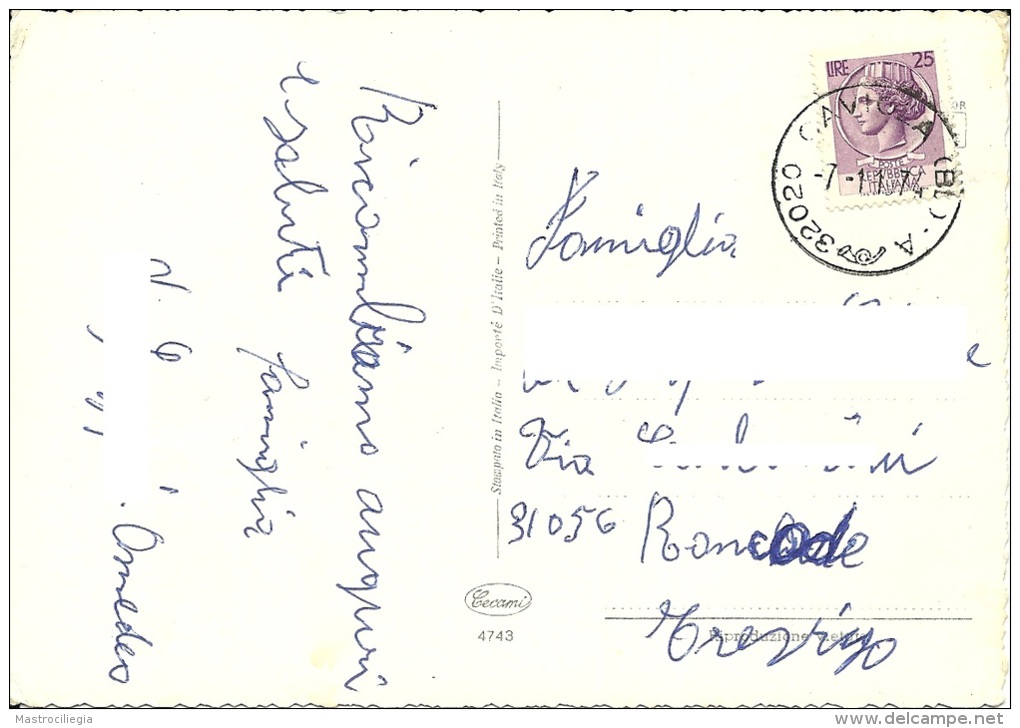 Ricambiamo auguri
e saluti famiglia
Amedeo
Stampato in Italia – Importé D'Italie – Printed in Italy
Cecami
4743
LIRE 25
POSTE
REPVBBLICA
ITALIANA
32020 CAVIOLA (BL) · A
Famiglia
Via
31056 Roncade
Treviso
Riproduzione
Mastrociliegia
www.delcampe.net